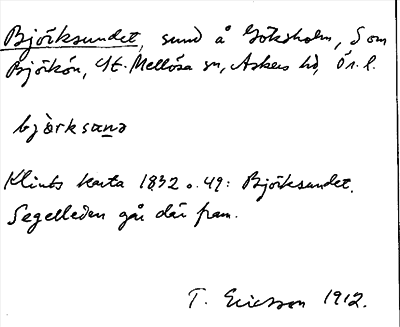 Björksundet, sund å Göksholm, S om
Björkön, St. Mellösa sn, Askers hd, Ör. l.
bjö̀rksunə
Klints karta 1832 o. 49: Björksundet.
Segelleden går där fram.
T. Ericsson 1912.